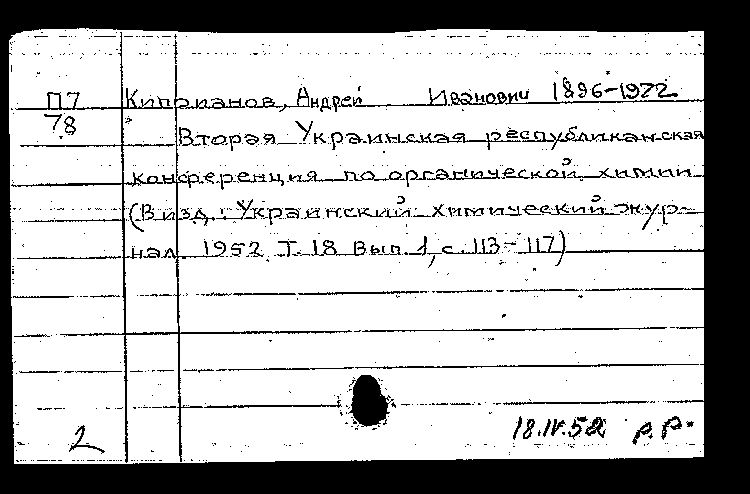 П7 Киприанов, Андрей Иванович 1896-1972.
78 Вторая Украинская республиканская
конференция по органической химии
(В изд.: Украинский химический жур-
нал. 1952 Т. 18 Вып. 1, с. 113-117)
2 18.IV.52 Р.Р.